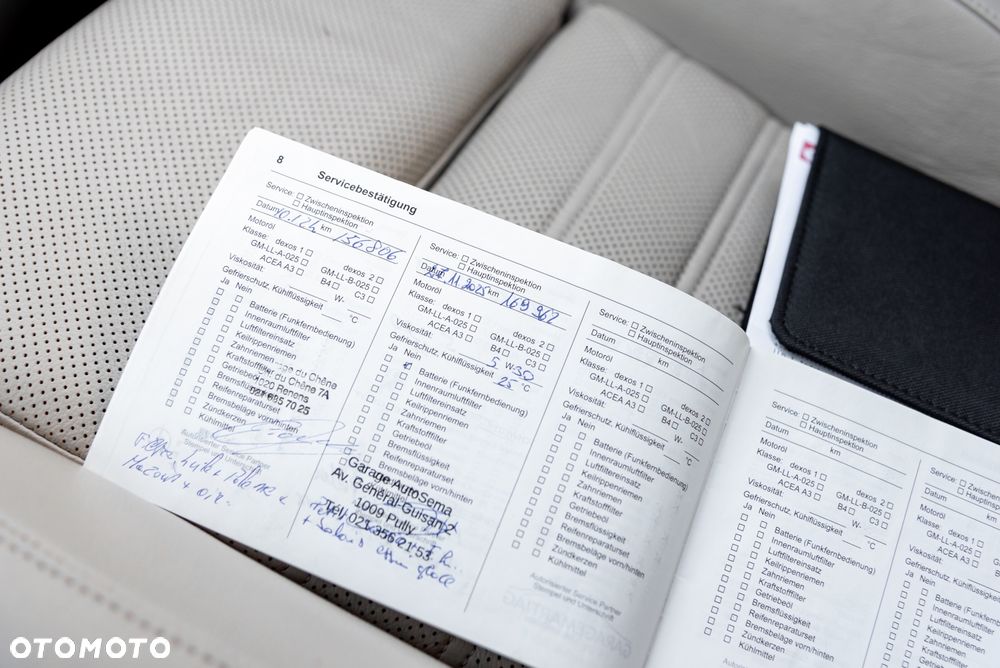 8
Servicebestätigung
Service: Zwischeninspektion
Hauptinspektion
Datum km 156806
Motoröl
Klasse: dexos 1 dexos 2
GM-LL-A-025 GM-LL-B-025
ACEA A3 B4 C3
Viskosität: W-
Gefrierschutz, Kühlflüssigkeit °C
Ja Nein
Batterie (Funkfernbedienung)
Innenraumluftfilter
Luftfiltereinsatz
Keilrippenriemen
Zahnriemen
Kraftstofffilter
Getriebeöl
Bremsflüssigkeit
Reifenreparaturset
Bremsbeläge vorn/hinten
Zündkerzen
Kühlmittel
du Chêne
du Chêne 7A
1020 Renens
021 635 70 25
Autorisierter Service Partner
Stempel und Unterschrift
Service: Zwischeninspektion
Hauptinspektion
Datum .11.2025 km 169 962
Motoröl
Klasse: dexos 1 dexos 2
GM-LL-A-025 GM-LL-B-025
ACEA A3 B4 C3
Viskosität: 5 W-30
Gefrierschutz, Kühlflüssigkeit 25 °C
Ja Nein
Batterie (Funkfernbedienung)
Innenraumluftfilter
Luftfiltereinsatz
Keilrippenriemen
Zahnriemen
Kraftstofffilter
Getriebeöl
Bremsflüssigkeit
Reifenreparaturset
Bremsbeläge vorn/hinten
Garage AutoSema
Av. Général-Guisan
1009 Pully
Tél. 021 356 21 53
Service: Zwischeninspektion
Hauptinspektion
Datum km
Motoröl
Klasse: dexos 1 dexos 2
GM-LL-A-025 GM-LL-B-025
ACEA A3 B4 C3
Viskosität: W-
Gefrierschutz, Kühlflüssigkeit °C
Ja Nein
Batterie (Funkfernbedienung)
Innenraumluftfilter
Luftfiltereinsatz
Keilrippenriemen
Zahnriemen
Kraftstofffilter
Getriebeöl
Bremsflüssigkeit
Reifenreparaturset
Bremsbeläge vorn/hinten
Zündkerzen
Kühlmittel
Autorisierter Service Partner
Stempel und Unterschrift
Service: Zwischeninspektion
Hauptinspektion
Datum km
Motoröl
Klasse: dexos 1 dexos 2
GM-LL-A-025 GM-LL-B-025
ACEA A3 B4 C3
Viskosität: W-
Gefrierschutz, Kühlflüssigkeit °C
Ja Nein
Batterie (Funkfernbedienung)
Innenraumluftfilter
Luftfiltereinsatz
Keilrippenriemen
Zahnriemen
Kraftstofffilter
Getriebeöl
Bremsflüssigkeit
Reifenreparaturset
Bremsbeläge vorn/hinten
Zündkerzen
Kühlmittel
Service: Zwischeninspektion
Hauptinspektion
Datum
Motoröl
Klasse: dexos 1
GM-LL-A-025
ACEA A3
Viskosität:
Gefrierschutz, Kühlflüssigkeit
Ja Nein
Batterie
Innenraumluftfilter
Luftfiltereinsatz
Keilrippenriemen
Zahnriemen
Kraftstofffilter
OTOMOTO